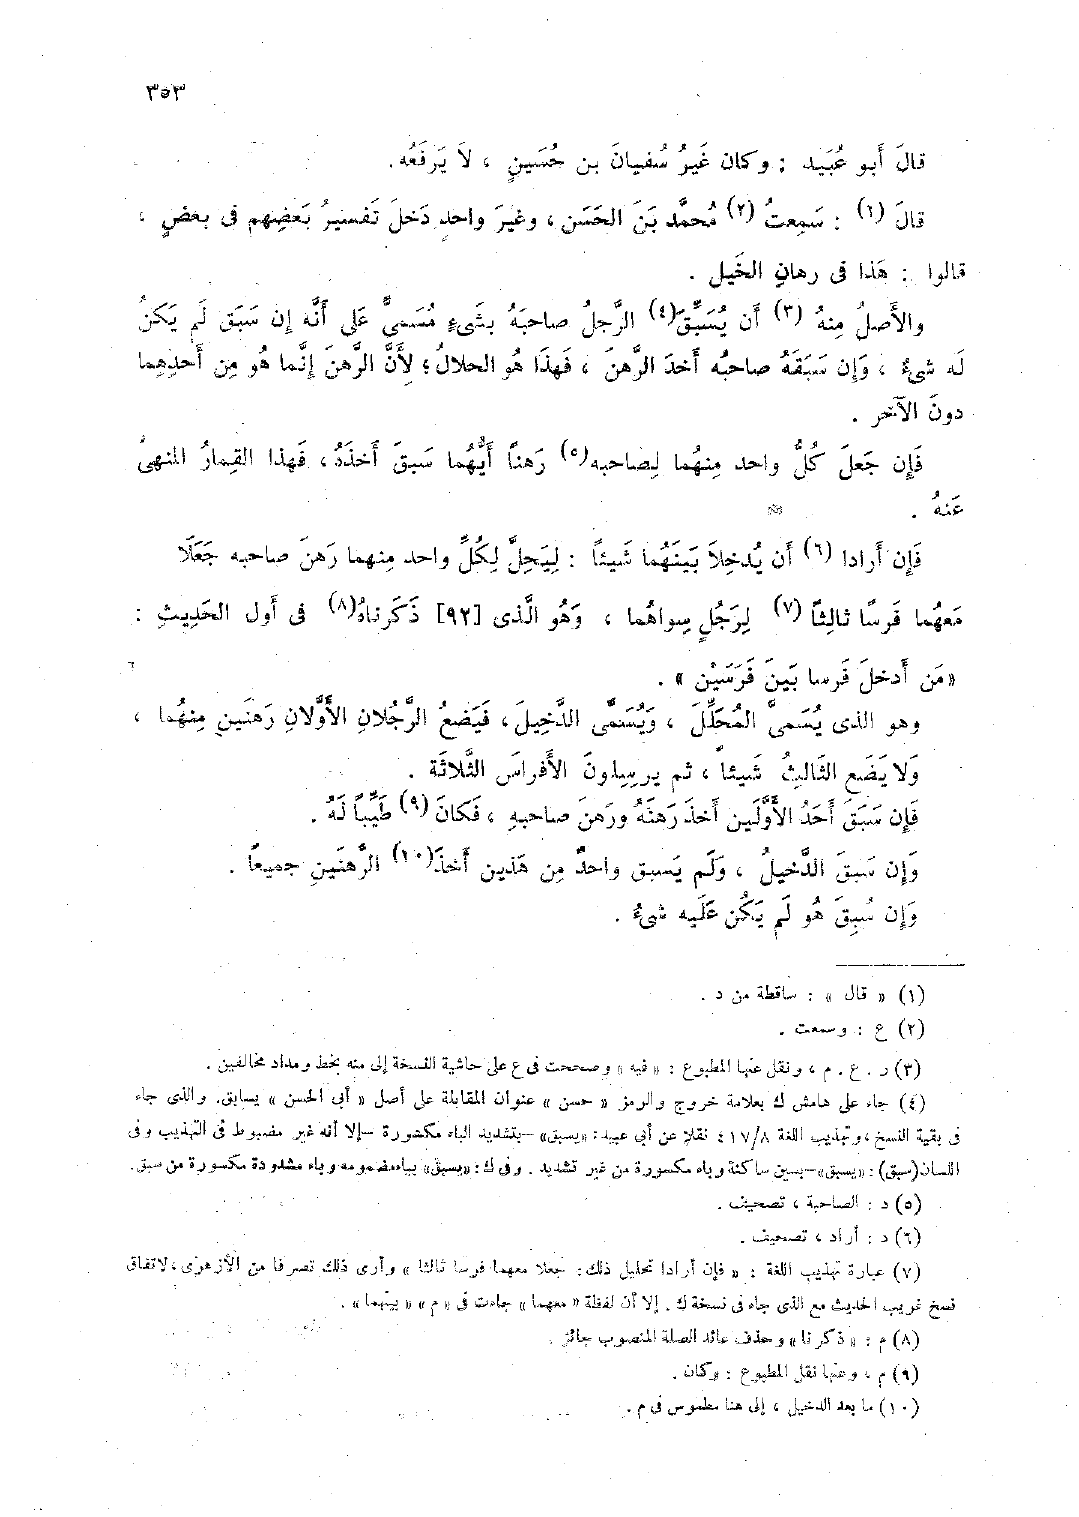 ٣٥٣
قالَ أَبو عُبَيد : وكان غَيرُ سُفيانَ بن حُسَينٍ ، لاَ يَرفَعُه.
قالَ (١) : سَمِعتُ (٢) مُحمَّد بنَ الحَسَن ، وغيرَ واحدٍ دَخلَ تَفسيرُ بَعضِهم فى بعضٍ ،
قالوا : هَذا فى رهانِ الخَيل .
والأَصلُ مِنهُ (٣) أَن يُسَبِّقَ(٤) الرَّجلُ صاحبَهُ بشَىءٍ مُسَمىًّ عَلى أَنَّه إن سَبَق لَم يَكنُ
لَه شىءٌ ، وَإن سَبَقَهُ صاحبُه أَخذَ الرَّهنَ ، فَهذَا هُو الحلالُ؛ لِأَنَّ الرَّهنَ إنَّما هُو مِن أَحدِهِما
دونَ الآخر .
فَإن جَعلَ كُلُّ واحد مِنهُما لِصاحبه(٥) رَهناً أَيُّهما سَبقَ أَخذَهُ ، فَهذا القِمارُ المنهىُ
عَنهُ .
فَإن أَرادا (٦) أَن يُدخِلاَ بَينَهُما شَيئاً : لِيَحِلَّ لِكُلِّ واحد مِنهما رَهنَ صاحبه جَعَلَا
مَعهُما فَرسًا ثالِثاً (٧) لِرَجُلٍ سِواهُما ، وَهُو الَّذى [٩٢] ذَكَرناهُ(٨) فى أَول الحَديثِ :
«مَن أَدخلَ فَرسا بَينَ فَرَسَيْن » .
وهو الذى يُسَمىَّ المُحَلِّلَ ، وَيُسَمَّى الدَّخِيلَ ، فَيَضعُ الرَّجُلانِ الأَوَّلانِ رَهنَينِ مِنهُما ،
وَلا يَضَع الثالِثُ شَيئاً ، ثم يرسِلونَ الأَفراسَ الثَّلاثَة .
فَإن سَبَقَ أَحَدُ الأَوَّلَين أَخذَ رَهنَهُ ورَهنَ صاحبهِ ، فَكانَ (٩) طَيِّباً لَهُ .
وَإن سَبقَ الدَّخيلُ ، وَلَم يَسبق واحدٌ مِن هَذين أَخذَ(١٠) الرَّهنَينِ جميعاً .
وَإن سُبِقَ هُو لَم يَكُن عَلَيه شىءٌ .
(١) « قال » : ساقطة من د .
(٢) ع : وسمعت .
(٣) ر . ع . م ، ونقل عنها المطبوع : « فيه » وصححت فى ع على حاشية النسخة إلى منه بخط ومداد مخالفين .
(٤) جاء على هامش ك بعلامة خروج والرمز « حسن » عنوان المقابلة على أصل « أبى الحسن » يسابق. والذى جاء
فى بقية النسخ ، وتهذيب اللغة ٤١٧/٨ نقلا عن أبى عبيد : «يسبق» –بتشديد الباء مكسورة –إلا أنه غير مضبوط فى التهذيب وفى
اللسان (سبق) : «يسبق»–بسين ساكنة وباء مكسورة من غير تشديد . وفى ك : «يسبق» بياء مضمومه وباء مشدودة مكسورة من سبق.
(٥) د : الصاحبة ، تصحيف .
(٦) د : أراد ، تصحيف .
(٧) عبارة تهذيب اللغة : « فإن أرادا تحليل ذلك : جعلا معهما فرسا ثالثا » وأرى ذلك تصرفا من الأزهرى ، لاتفاق
نسخ غريب الحديث مع الذى جاء فى نسخة ك . إلا أن لفظة « معهما » جاءت فى « م » « بينهما » .
(٨) م : « ذكرنا » وحذف عائد الصلة المنصوب جائز .
(٩) م ، وعنها نقل المطبوع : وكان .
(١٠) ما بعد الدخيل ، إلى هنا مطموس فى م .